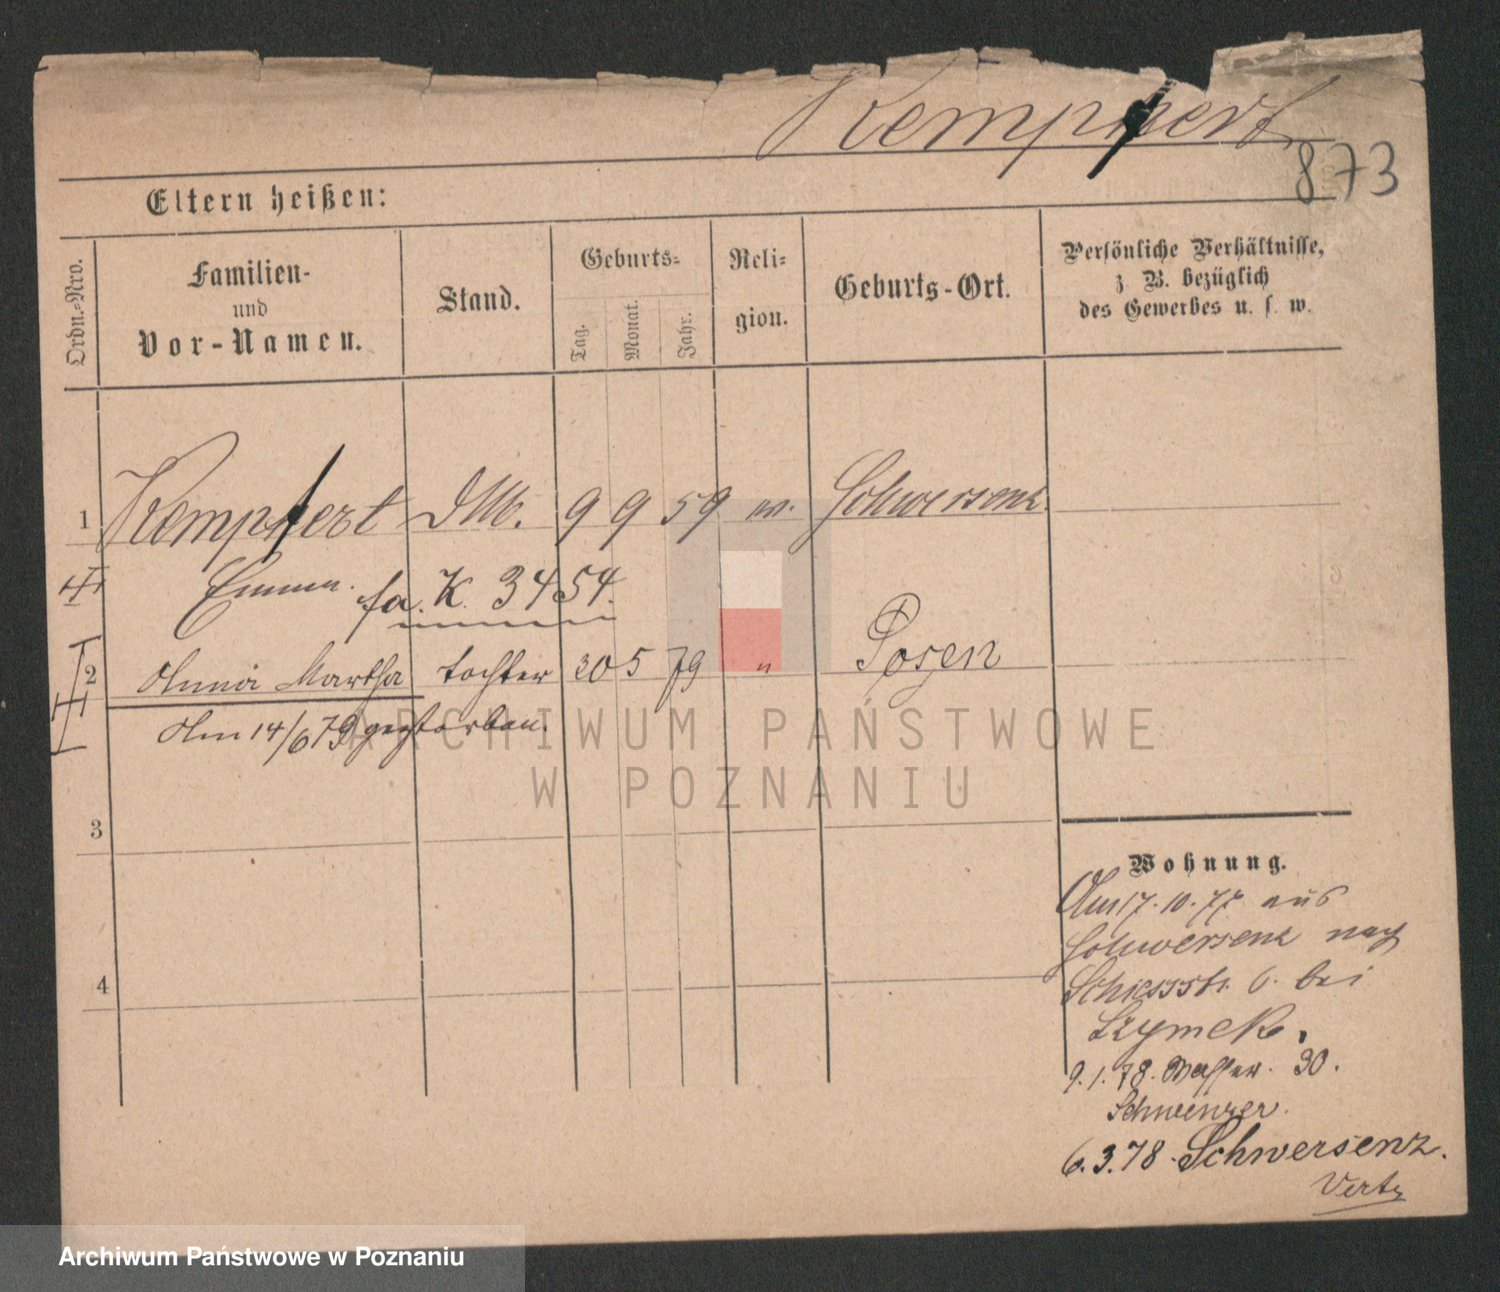 Kempfert
873
Eltern heißen:
Ordn.-Nro.
Familien-
und
Vor-Namen.
Stand.
Geburts-
Tag.
Monat.
Jahr.
Reli-
gion.
Geburts-Ort.
Persönliche Verhältnisse,
z. B. bezüglich
des Gewerbes u. s. w.
1 Kempfert DM. 9 9 59 Schwersenz
Emma. fa. K. 3454.
2 Anna Martha tochter 20 5 79 " Posen
Am 14/6 79 gestorben.
ARCHIWUM PAŃSTWOWE
W POZNANIU
3
4
Wohnung.
Am 17. 10. 77 aus
Schwersenz nach
Schiessstr. 6. bei
Szymek.
9. 1. 78. Wasser. 30.
Schwenzer.
6. 3. 78. Schwersenz.
Archiwum Państwowe w Poznaniu